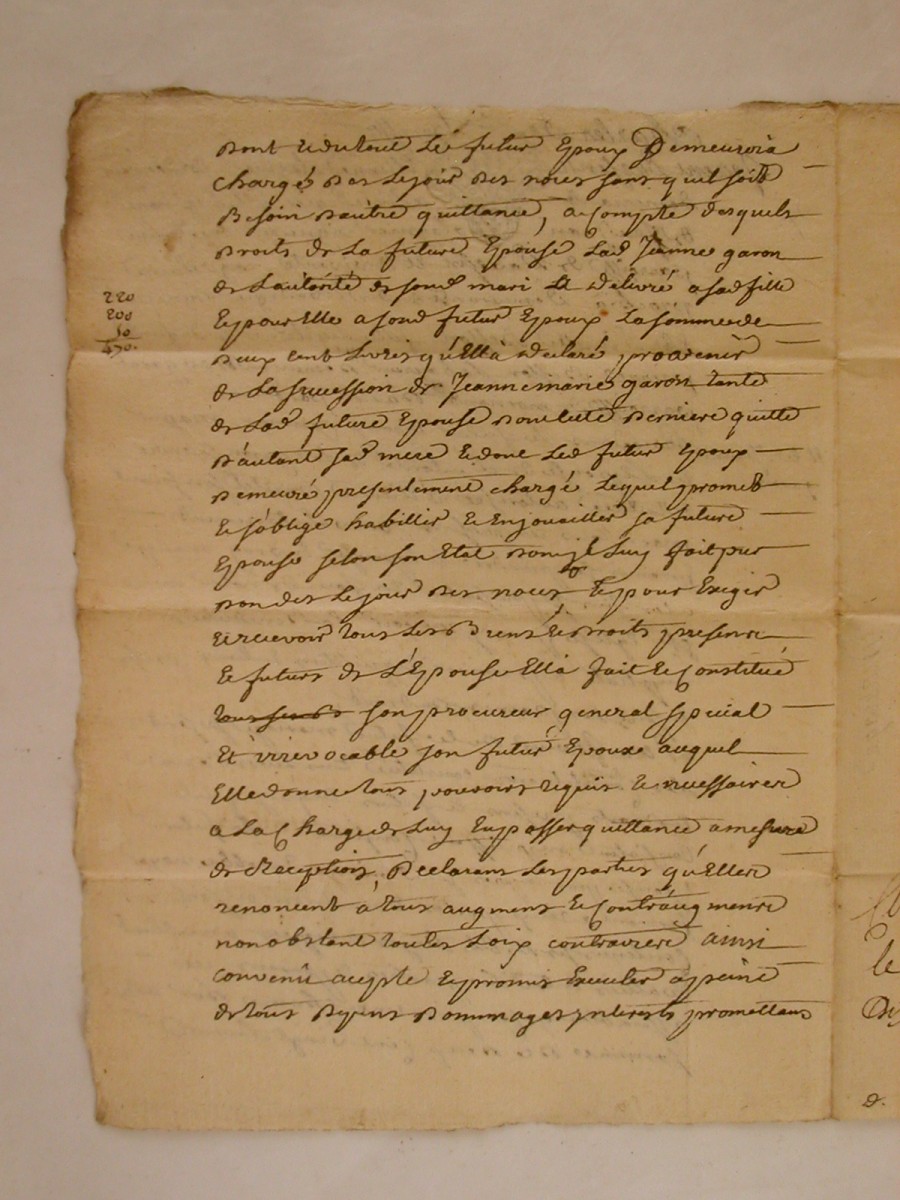 dont et du tout Led futur Epoux Demeurera
chargé des Le jour des noces sans quil soit
Besoin dautre quittance, a compte desquels
droits de La future Epouse Lad Jeanne garon
de Lautorité de sond mari a delivré a sad fille
220
200
50
470.
Et pour Elle a sond futur Epoux La somme de
deux cent Livres qu'Ella declaré provenir
de La succession de Jeanne marie garon tante
de Lad future Epouse dont lette derniere quitte
d'autant sad mere Et dont Led futur Epoux
demeure presentement chargé Lequel promet
Et s'oblige habiller Et Enjouailler sa future
Epouse selon son Etat dont jl Luy fait pur
don des Le jour des noces Et pour Exiger
Et recevoir tous Les Biens Et droits presents
Et futurs de L'Epouse Ella fait Et Constitué
son procureur general special
Et irrevocable son futur Epoux auquel
Elle donne tous pouvoirs requis Et necessaires
a La Charge de Luy En passer quittance a mesure
de Reception, Declarant Les parties qu'Elles
renoncent à tous augment Et Contr'augment
nonobstant toutes Loix contraires ainsi
convenu accepté Et promis Executer a peine
de tous depens dommages jnterests promettans
le
d.